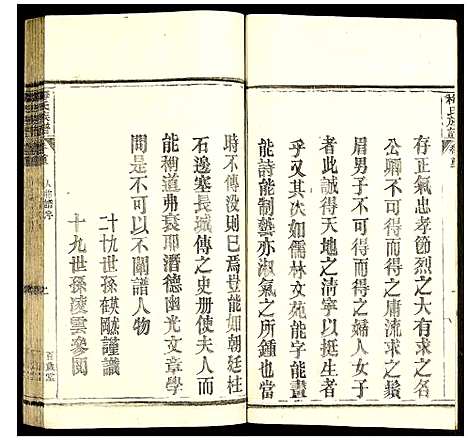 存正氣忠孝節烈之大有得之名
公卿不可得而得之庸流求之鬚
眉男子不可得而得之婦人女子
者此誠得天地之清寧以挺生者
乎又其次如儒林文苑能字能畫
能詩能制藝亦淑氣之所鍾也當
時不傳没則已焉豈能如朝廷柱
石邊塞長城傳之史册使夫人而
能稱道弗衰耶潛德幽光文章學
問是不可以不闡譜人物
二十九世孫謹識
十九世孫凌雲參閱
氏族譜
人物譜序
百歲堂